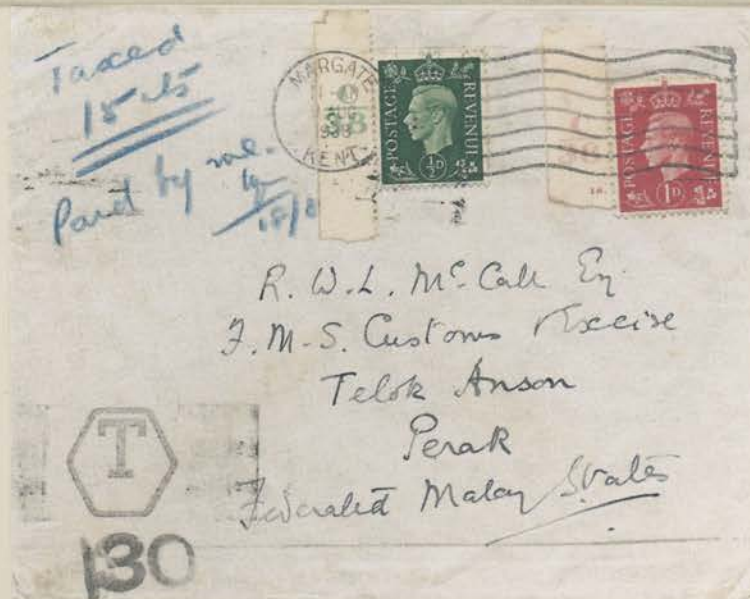 Taxed
15 cts
Paid by me.
MARGATE
KENT
38
POSTAGE REVENUE
½D
38
18.
POSTAGE REVENUE
1D
R. W. L. McCall Esq
F. M. S. Customs & Excise
Telok Anson
Perak
Federated Malay States
T
130